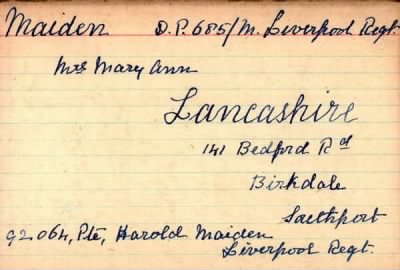 Maiden D.P. 685/M. Liverpool Regt.
Mrs Mary Ann
Lancashire
141 Bedford Rd
Birkdale
Southport
92064, Pte, Harold Maiden
Liverpool Regt.